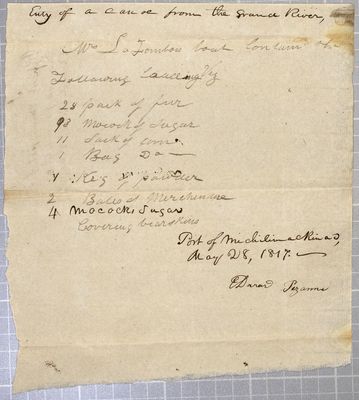 Entry of a canoe from the Grand River,
Mrs LaFombois boat Contain the
Following
28 pack of fur
98 Mocock of Sugar
11 Sack of corn
1 Bag Do —
1 Keg of powder
2 Bales of Merchendise
4 Mococks Sugar
Covering bearskins
Port of Michilimackinac,
May 28, 1817.
Pizanne